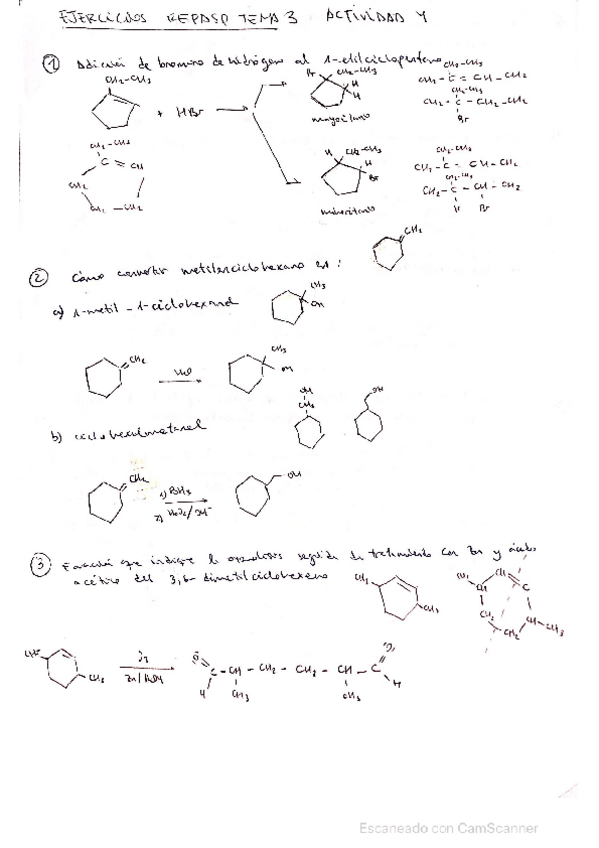 EJERCICIOS REPASO TEMA 3 ACTIVIDAD 4
① Adición de bromuro de hidrógeno al 1-etilciclopenteno
CH2-CH3
+ HBr
Br CH2-CH3
H
H
mayoritario
CH2-CH3
CH2 - C = CH - CH2
CH2-CH3
CH2 - C - CH2 - CH2
Br
CH2-CH3
C = CH
CH2
CH2 - CH2
H CH2-CH3
H
Br
minoritario
CH2-CH3
CH2 - C = CH - CH2
CH2-CH3
CH2 - C - CH - CH2
H Br
② Cómo convertir metilenciclohexano en:
CH2
a) 1-metil-1-ciclohexanol
CH3
OH
CH2
H2O
CH3
OH
b) ciclohexilmetanol
OH
CH2
OH
CH2
1) BH3
2) H2O2/OH-
OH
③ Ecuación que indique la ozonolisis seguida de tratamiento con Zn y ácido
acético del 3,6-dimetilciclohexeno
CH3
CH3
CH3
CH
CH = C
CH2
CH2
CH - CH3
CH3
CH3
O3
Zn/
O
C - CH - CH2 - CH2 - CH - C
O
H
CH3
CH3
H
Escaneado con CamScanner